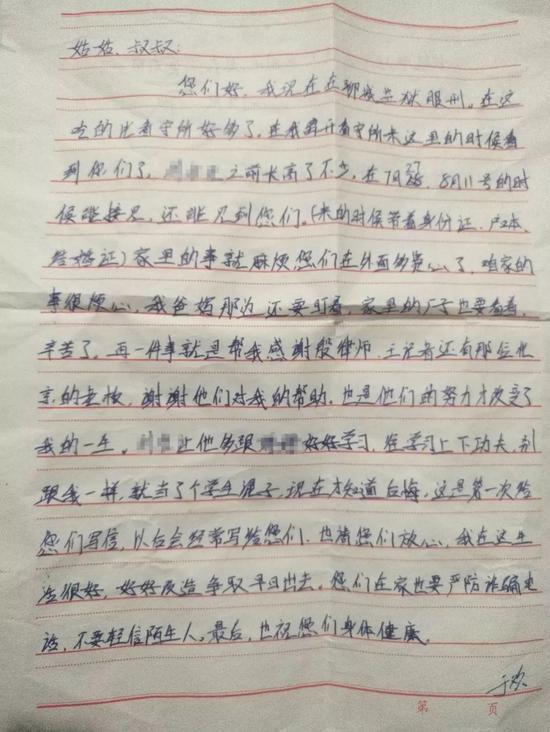 姑姑、叔叔:
您们好,我现在在聊城监狱服刑。在这
吃的比看守所好多了,在我离开看守所来这里的时候看
到你们了, 之前长高了不少,在7月27、8月11号的时
候能接见,还能见到您们。(来的时候带着身份证、户口本、
结婚证)家里的事就麻烦您们在外面多费心了,咱家的
事很烦心,我爸妈那边还要盯着,家里的厂子也要看着,
辛苦了,再一件事就是帮我感谢殷律师、王记者还有那位北
京的 ,谢谢他们对我的帮助,也是他们的努力才改变了
我的一生。 让他多跟 好好学习,在学习上下功夫,别
跟我一样,就当了个学生混子,现在才知道后悔,这是第一次给
您们写信,以后会经常写给您们,也请您们放心,我在这生
活很好,好好改造争取早日出去,您们在家也要严防诈骗电
话,不要轻信陌生人。最后,也祝您们身体健康。
于欢
第 页